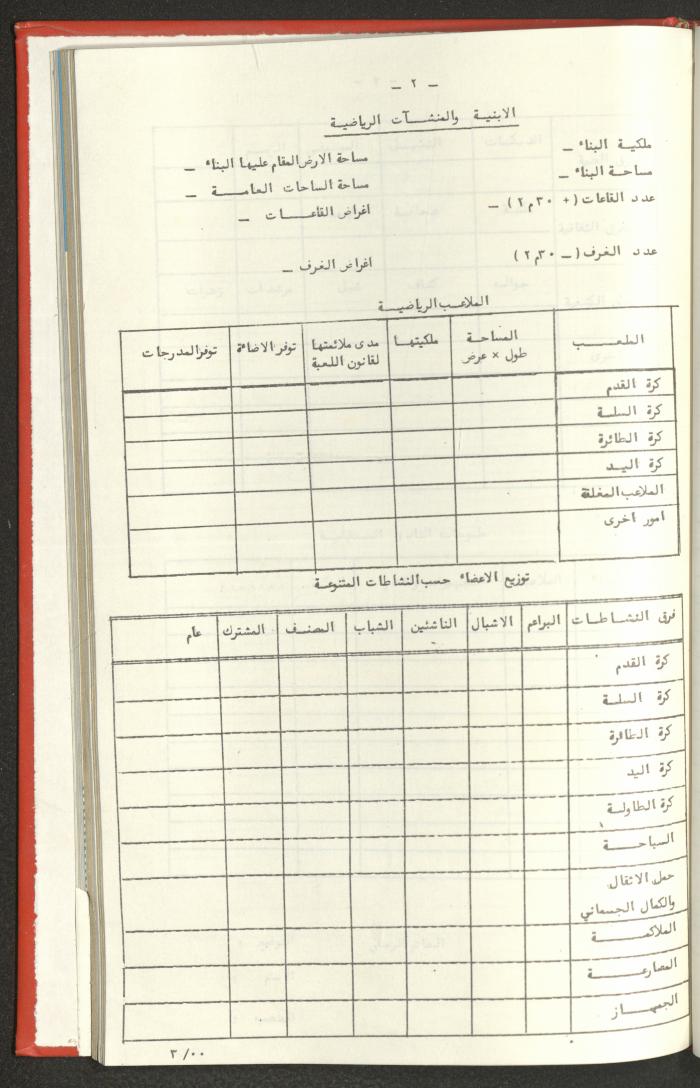 ـ ٢ ـ
الابنية والمنشــآت الرياضية
ملكية البناء ـ
مساحة البناء ـ مساحة الارض المقام عليها البناء ـ
مساحة الساحات العامــة ـ
عدد القاعات ( + ٣٠م٢ ) ـ اغراض القاعــات ـ
عدد الغرف ( ـ ٣٠م٢ ) اغراض الغرف ـ
الملاعب الرياضيـة
الملعـــب المساحة ملكيتها مدى ملائمتها توفر الاضاءة توفر المدرجات
طول × عرض لقانون اللعبة
كرة القدم
كرة السلـة
كرة الطائرة
كرة اليـد
الملاعب المغلقة
امور اخرى
توزيع الاعضاء حسب النشاطات المتنوعة
فرق النشـاطـات البراعم الاشبال الناشئين الشباب المصنـف المشترك عام
كرة القدم
كرة السلـة
كرة الطائرة
كرة اليد
كرة الطاولـة
السباحـــة
حمل الاثقال
والكمال الجسماني
الملاكمــة
المصارعــة
الجمبـاز
٣/٠٠